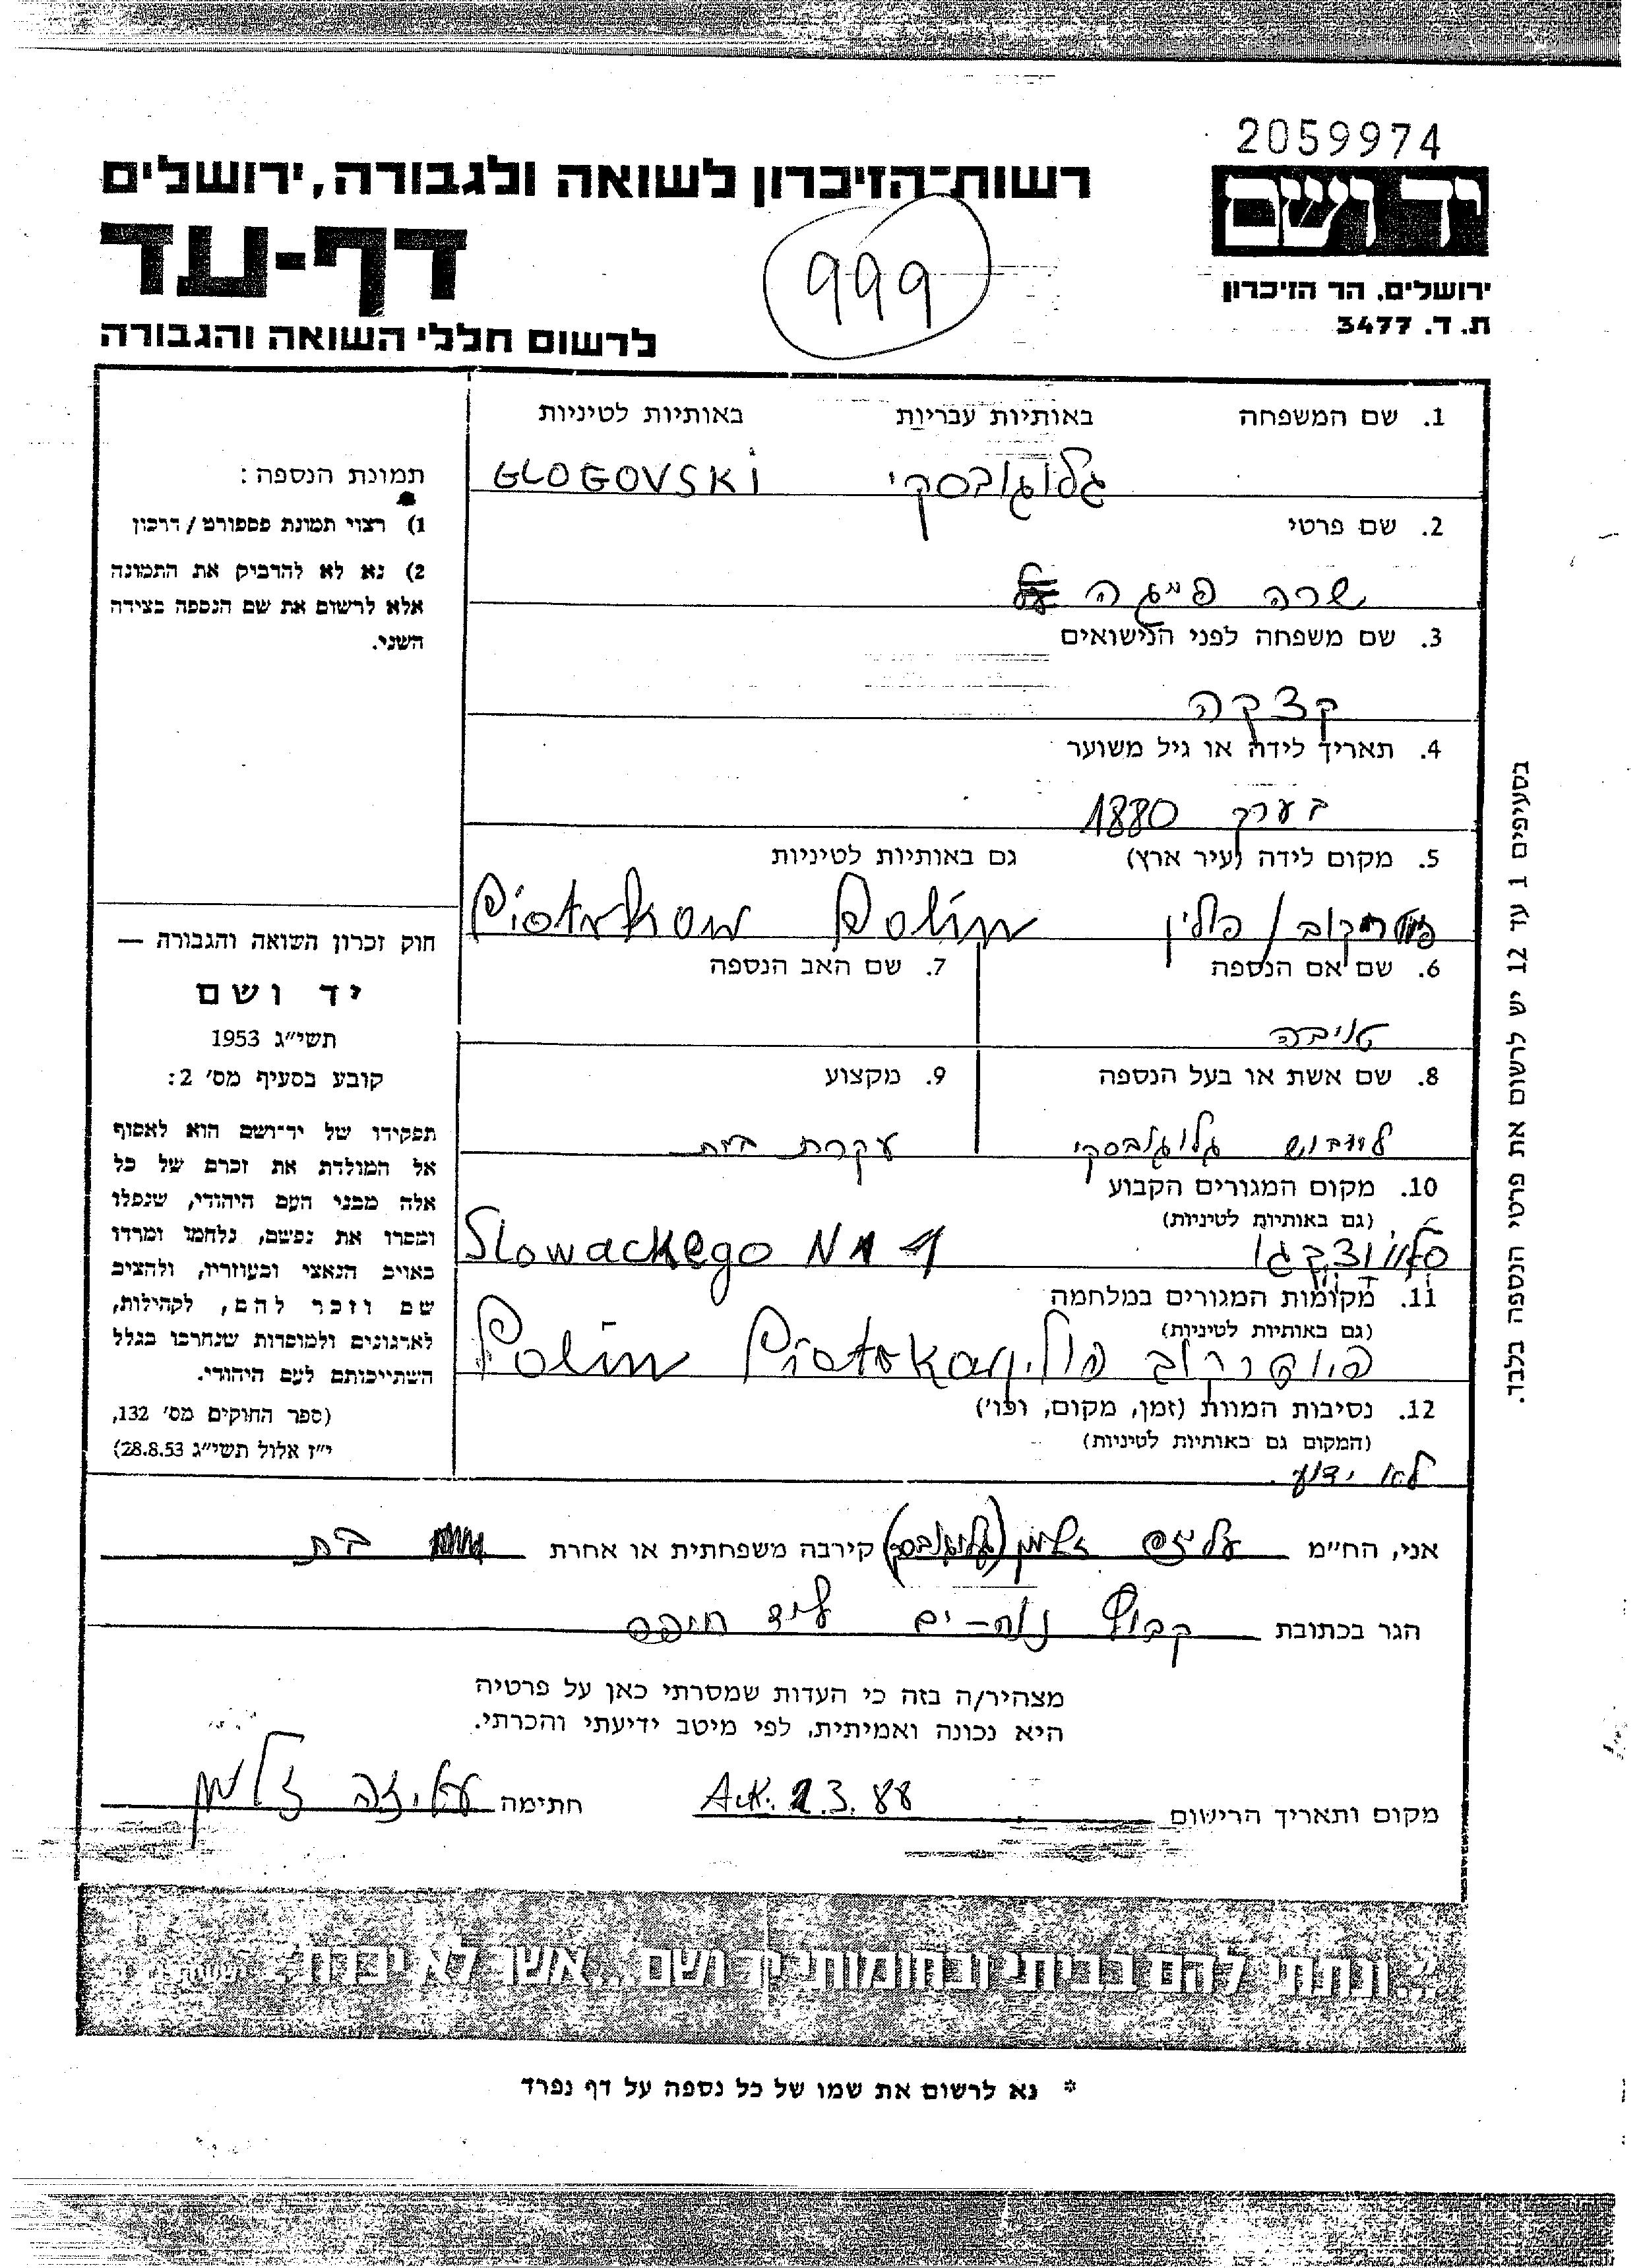 2059974
יד ושם
רשות־הזיכרון לשואה ולגבורה, ירושלים
דף-עד
999
ירושלים, הר הזיכרון
ת. ד. 3477
לרשום חללי השואה והגבורה
1. שם המשפחה באותיות עבריות באותיות לטיניות
גלוגובסקי GLOGOVSKI
2. שם פרטי
שרה פייגה
3. שם משפחה לפני הנישואים
קצקה
4. תאריך לידה או גיל משוער
בערך 1880
5. מקום לידה (עיר ארץ) גם באותיות לטיניות
פולין Piotrkow Polin
6. שם אם הנספה 7. שם האב הנספה
טויבה
8. שם אשת או בעל הנספה 9. מקצוע
גלוגובסקי עקרת בית
10. מקום המגורים הקבוע
(גם באותיות לטיניות)
Slowackego N 1
11. מקומות המגורים במלחמה
(גם באותיות לטיניות)
פיוטרקוב פולין Piotrkow Polin
12. נסיבות המוות (זמן, מקום, וכו')
(המקום גם באותיות לטיניות)
לא ידוע.
תמונת הנספה:
1) רצוי תמונת פספורט/דרכון
2) נא לא להדביק את התמונה
אלא לרשום את שם הנספה בצידה
השני.
חוק זכרון השואה והגבורה —
יד ושם
תשי"ג 1953
קובע בסעיף מס' 2:
תפקידו של יד־ושם הוא לאסוף
אל המולדת את זכרם של כל
אלה מבני העם היהודי, שנפלו
ומסרו את נפשם, נלחמו ומרדו
באויב הנאצי ובעוזריו, ולהציב
שם וזכר להם, לקהילות,
לארגונים ולמוסדות שנחרבו בגלל
השתייכותם לעם היהודי.
(ספר החוקים מס' 132,
י"ז אלול תשי"ג 28.8.53)
בסעיפים 1 עד 12 יש לרשום את פרטי הנספה בלבד.
אני, הח"מ עליזה זלמן (גלוגובסקי) קירבה משפחתית או אחרת בת
הגר בכתובת קבוץ נוה-ים ליד חיפה
מצהיר/ה בזה כי העדות שמסרתי כאן על פרטיה
היא נכונה ואמיתית, לפי מיטב ידיעתי והכרתי.
מקום ותאריך הרישום 2.3.88 חתימה עליזה זלמן
"...ונתתי להם בביתי ובחומותי יד ושם...אשר לא יכרת"
* נא לרשום את שמו של כל נספה על דף נפרד